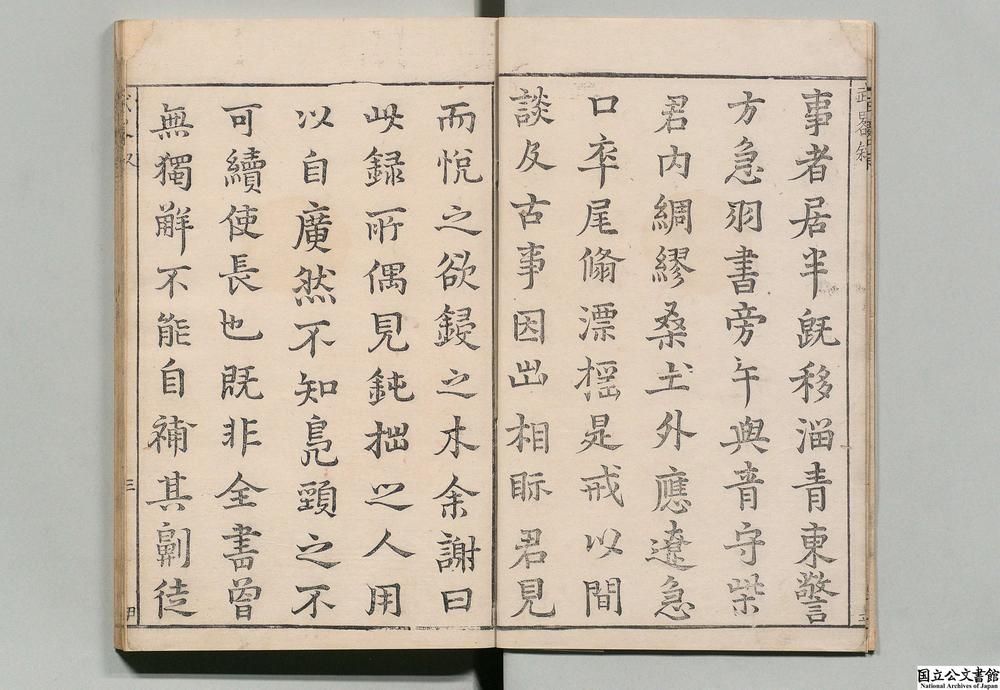 事者居半既移淄青東警
方急羽書旁午與青守柴
君内綢繆桑土外應遼急
口卒尾翛漂搖是戒以間
談及古事因出相眎君見
而悅之欲鋟之木余謝曰
此録所偶見鈍拙之人用
以自廣然不知鳧頸之不
可續使長也既非全書曾
無獨解不能自補其劓徒
三
国立公文書館
National Archives of Japan